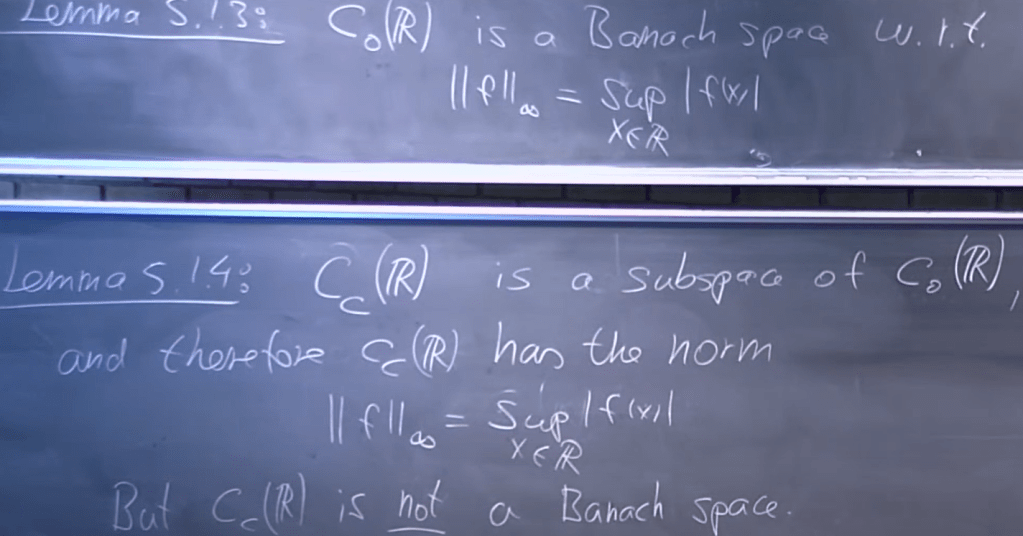 Lemma 5.1.3: C₀(ℝ) is a Banach space w.r.t.
||f||∞ = sup |f(x)|
x∈ℝ
Lemma 5.1.4: C_c(ℝ) is a subspace of C₀(ℝ),
and therefore C_c(ℝ) has the norm
||f||∞ = sup |f(x)|
x∈ℝ
But C_c(ℝ) is not a Banach space.